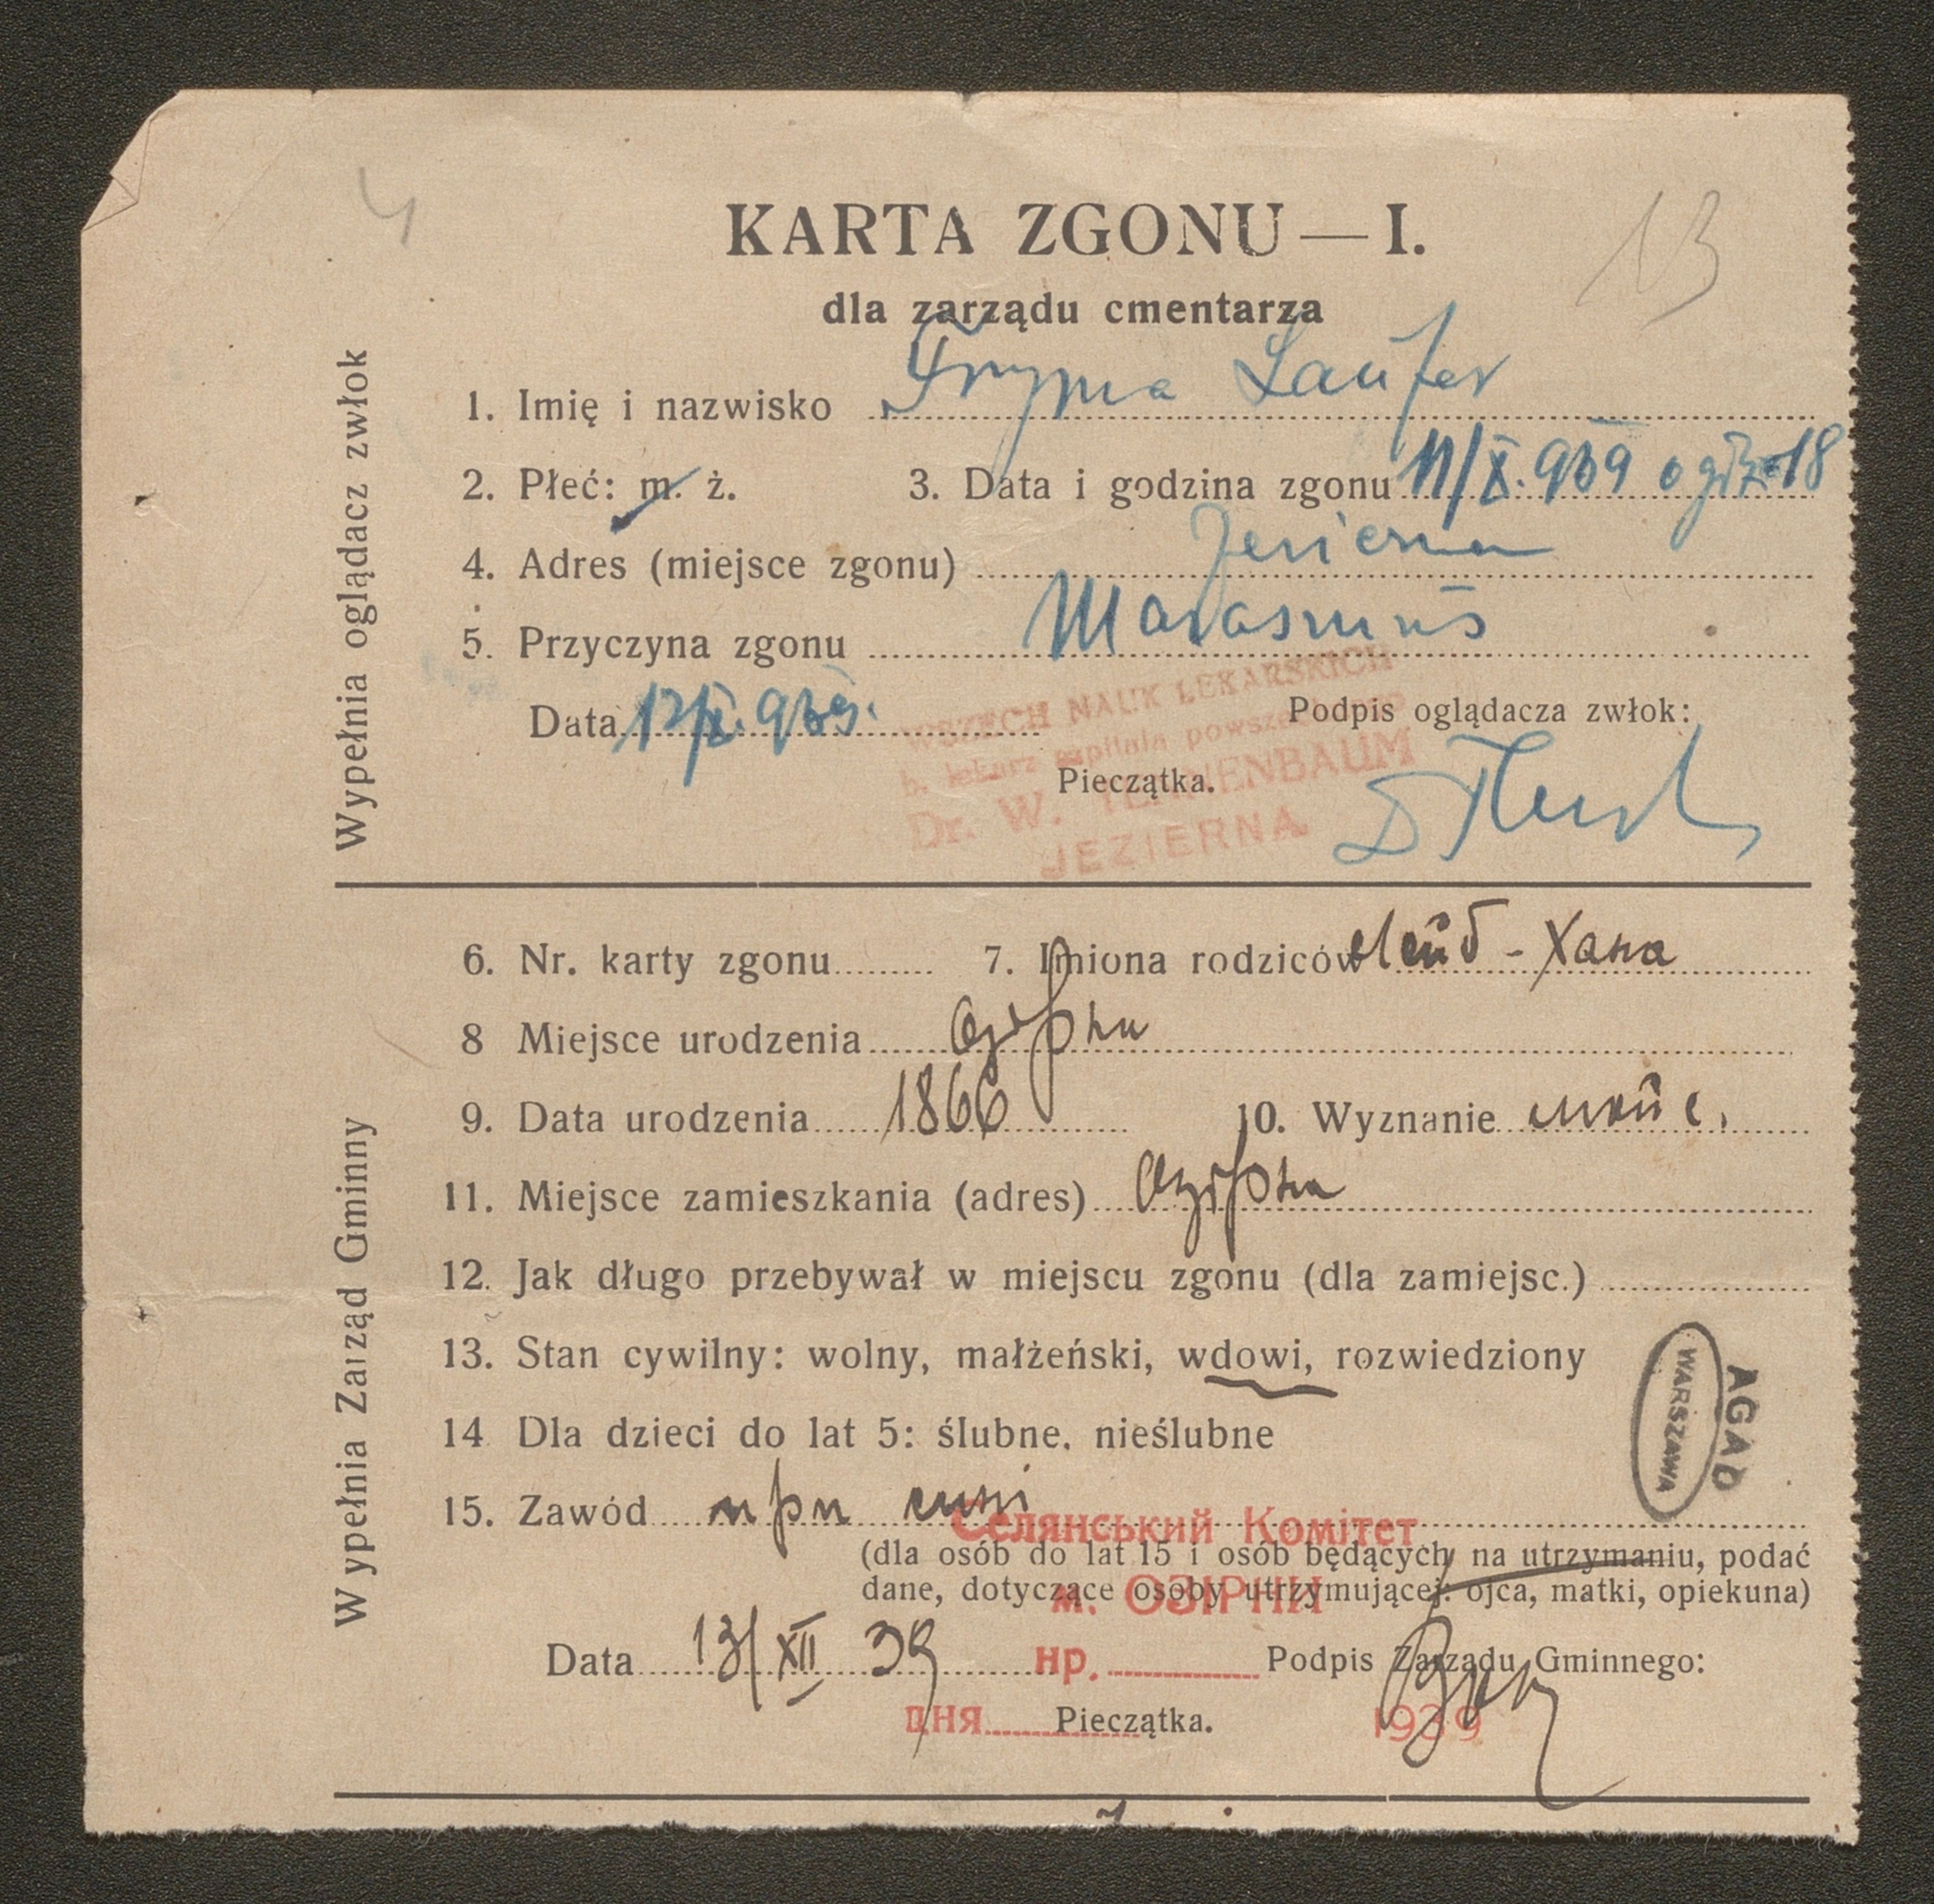 4
13
KARTA ZGONU — I.
dla zarządu cmentarza
Wypełnia oglądacz zwłok
1. Imię i nazwisko Fryma Laufer
2. Płeć: m. ż. 3. Data i godzina zgonu 11/X. 939 o godz 18
4. Adres (miejsce zgonu) Jezierna
5. Przyczyna zgonu Marasmus
Data 12/X. 939. Podpis oglądacza zwłok:
WSZECH NAUK LEKARSKICH
b. lekarz szpitala
Pieczątka.
Dr. W. TENNENBAUM
JEZIERNA
Wypełnia Zarząd Gminny
6. Nr. karty zgonu 7. Imiona rodziców Лейб - Хана
8 Miejsce urodzenia Озірна
9. Data urodzenia 1866 10. Wyznanie мойс.
11. Miejsce zamieszkania (adres) Озірна
12. Jak długo przebywał w miejscu zgonu (dla zamiejsc.)
13. Stan cywilny: wolny, małżeński, wdowi, rozwiedziony
14 Dla dzieci do lat 5: ślubne, nieślubne
15. Zawód при сині
Селянський Комітет
(dla osób do lat 15 i osób będących na utrzymaniu, podać
dane, dotyczące osoby utrzymującej: ojca, matki, opiekuna)
м. ОЗІРНИ
Data 13/XII 39 нр. Podpis Zarządu Gminnego:
дня Pieczątka. 1939
AGAD
WARSZAWA